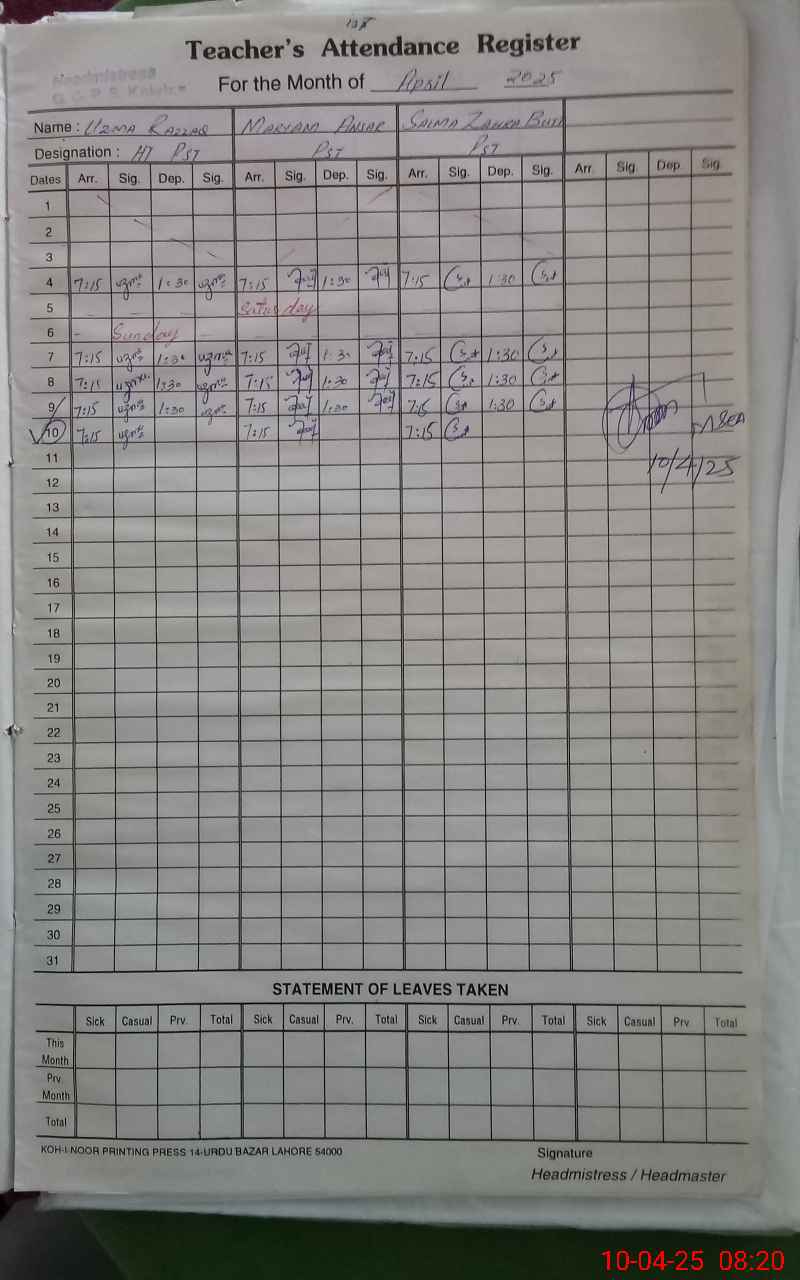 Teacher's Attendance Register
Headmistress
For the Month of April 2025
Name : UZMA RAZZAQ MARYAM ANSAR SAIMA ZAHRA
Designation : HT PST PST PST
Dates Arr. Sig. Dep. Sig. Arr. Sig. Dep. Sig. Arr. Sig. Dep. Sig. Arr. Sig. Dep. Sig.
1
2
3
4 7:15 1:30 7:15 1:30 7:15 1:30
5 Saturday
6 Sunday
7 7:15 1:30 7:15 1:30 7:15 1:30
8 7:15 1:30 7:15 1:30 7:15 1:30
9 7:15 1:30 7:15 1:30 7:15 1:30
10 7:15 7:15 7:15
10/4/25
11
12
13
14
15
16
17
18
19
20
21
22
23
24
25
26
27
28
29
30
31
STATEMENT OF LEAVES TAKEN
Sick Casual Prv. Total Sick Casual Prv. Total Sick Casual Prv. Total Sick Casual Prv. Total
This
Month
Prv.
Month
Total
KOH-I-NOOR PRINTING PRESS 14-URDU BAZAR LAHORE 54000
Signature
Headmistress / Headmaster
10-04-25 08:20